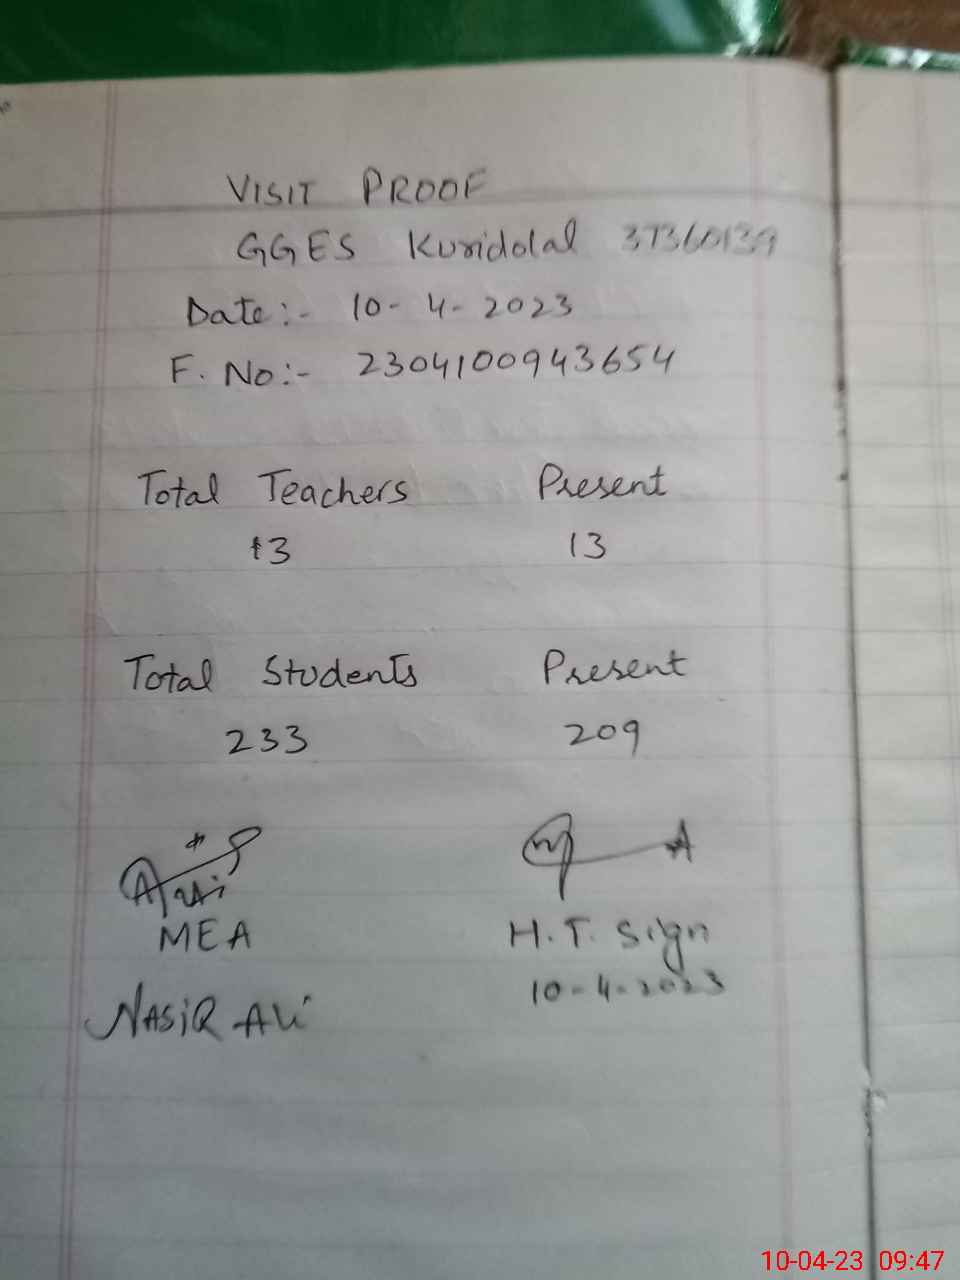 VISIT PROOF
GGES Kuridolal 37360139
Date:- 10-4-2023
F. No:- 2304100943654
Total Teachers Present
13 13
Total Students Present
233 209
MEA H.T. Sign
10-4-2023
NASIR ALi
10-04-23 09:47